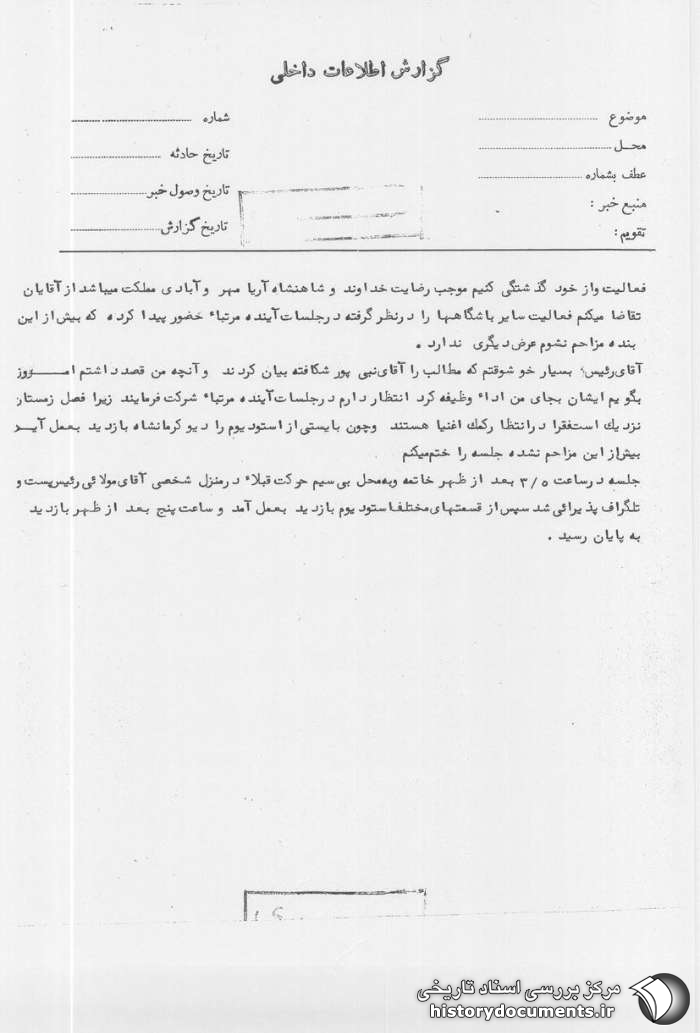 گزارش اطلاعات داخلی
موضوع
شماره
محل
تاریخ حادثه
عطف بشماره
تاریخ وصول خبر
منبع خبر :
تاریخ گزارش
تقویم :
فعالیت واز خود گذشتگی کنیم موجب رضایت خداوند و شاهنشاه آریا مهر و آبادی مملکت میباشد از آقایان
تقاضا میکنم فعالیت سایر باشگاهها را درنظر گرفته درجلسات آینده مرتباء حضور پیدا کرده که بیش از این
بنده مزاحم نشوم عرض دیگری ندارد .
آقای رئیس؛ بسیار خوشوقتم که مطالب را آقای نبی پور شکافته بیان کردند و آنچه من قصد داشتم امـــروز
بگویم ایشان بجای من اداء وظیفه کرد انتظار دارم درجلسات آینده مرتباء شرکت فرمایند زیرا فصل زمستان
نزدیك استفقرا درانتظا رکمك اغنیا هستند وچون بایستی از استودیوم رادیو کرمانشاه بازدید بعمل آیـد
بیش از این مزاحم نشده جلسه را ختم میکنم
جلسه درساعت ۳/۵ بعد از ظهر خاتمه وبه محل بی سیم حرکت قبلاء درمنزل شخصی آقای مولائی رئیس پست و
تلگراف پذیرائی شد سپس از قسمتهای مختلف استودیوم بازدید بعمل آمد و ساعت پنج بعد از ظهر بازدید
به پایان رسید .
مرکز بررسی اسناد تاریخی
historydocuments.ir